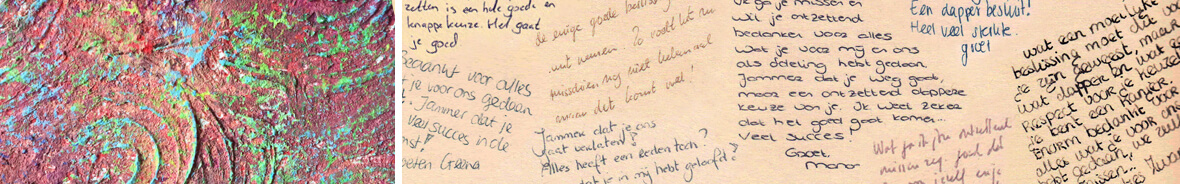 zetten is een hele goede en
knappe keuze. Het gaat
je goed
bedankt voor alles
t je voor ons gedaan
. Jammer dat je
Veel succes in de
mst!
de enige goede beslissing
wat nemen. Zo voelt het nu
misschien nog niet helemaal
maar dat komt wel!
Jammer dat je ons
gaat verlaten!
Alles heeft een reden toch?
dat je in mij hebt geloofd?
je missen en
wil je ontzettend
bedanken voor alles
wat je voor mij en ons
als afdeling hebt gedaan
Jammer dat je weg gaat,
maar een ontzettend dappere
keuze van je. Ik weet zeker
dat het goed gaat komen...
Veel succes!
Groet,
Een dapper besluit!
Heel veel sterkte.
groet
Wat ga ik jou ontzettend
missen zeg.
wat een moeilijke
beslissing moet dit voor
je zijn geweest, maar
wat dapper en wat een
Respect voor je keuze!
Je bent een kanjer.
Enorm bedankt voor
alles wat je voor ons
hebt gedaan, we
missen.